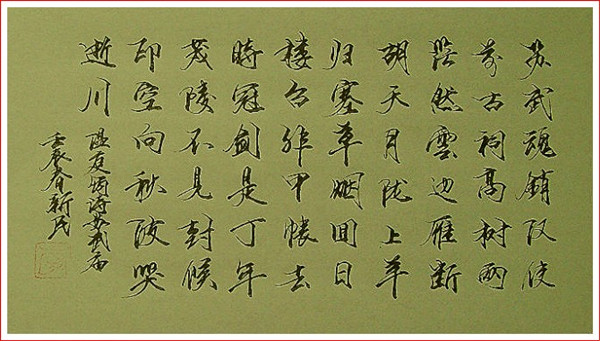 苏武魂銷汉使
前古祠高树兩
茫然雲边雁断
胡天月陇上羊
归塞草烟回日
楼台非甲帐去
時冠剑是丁年
茂陵不見封侯
印空向秋波哭
逝川
温庭筠诗苏武庙
壬辰春新民